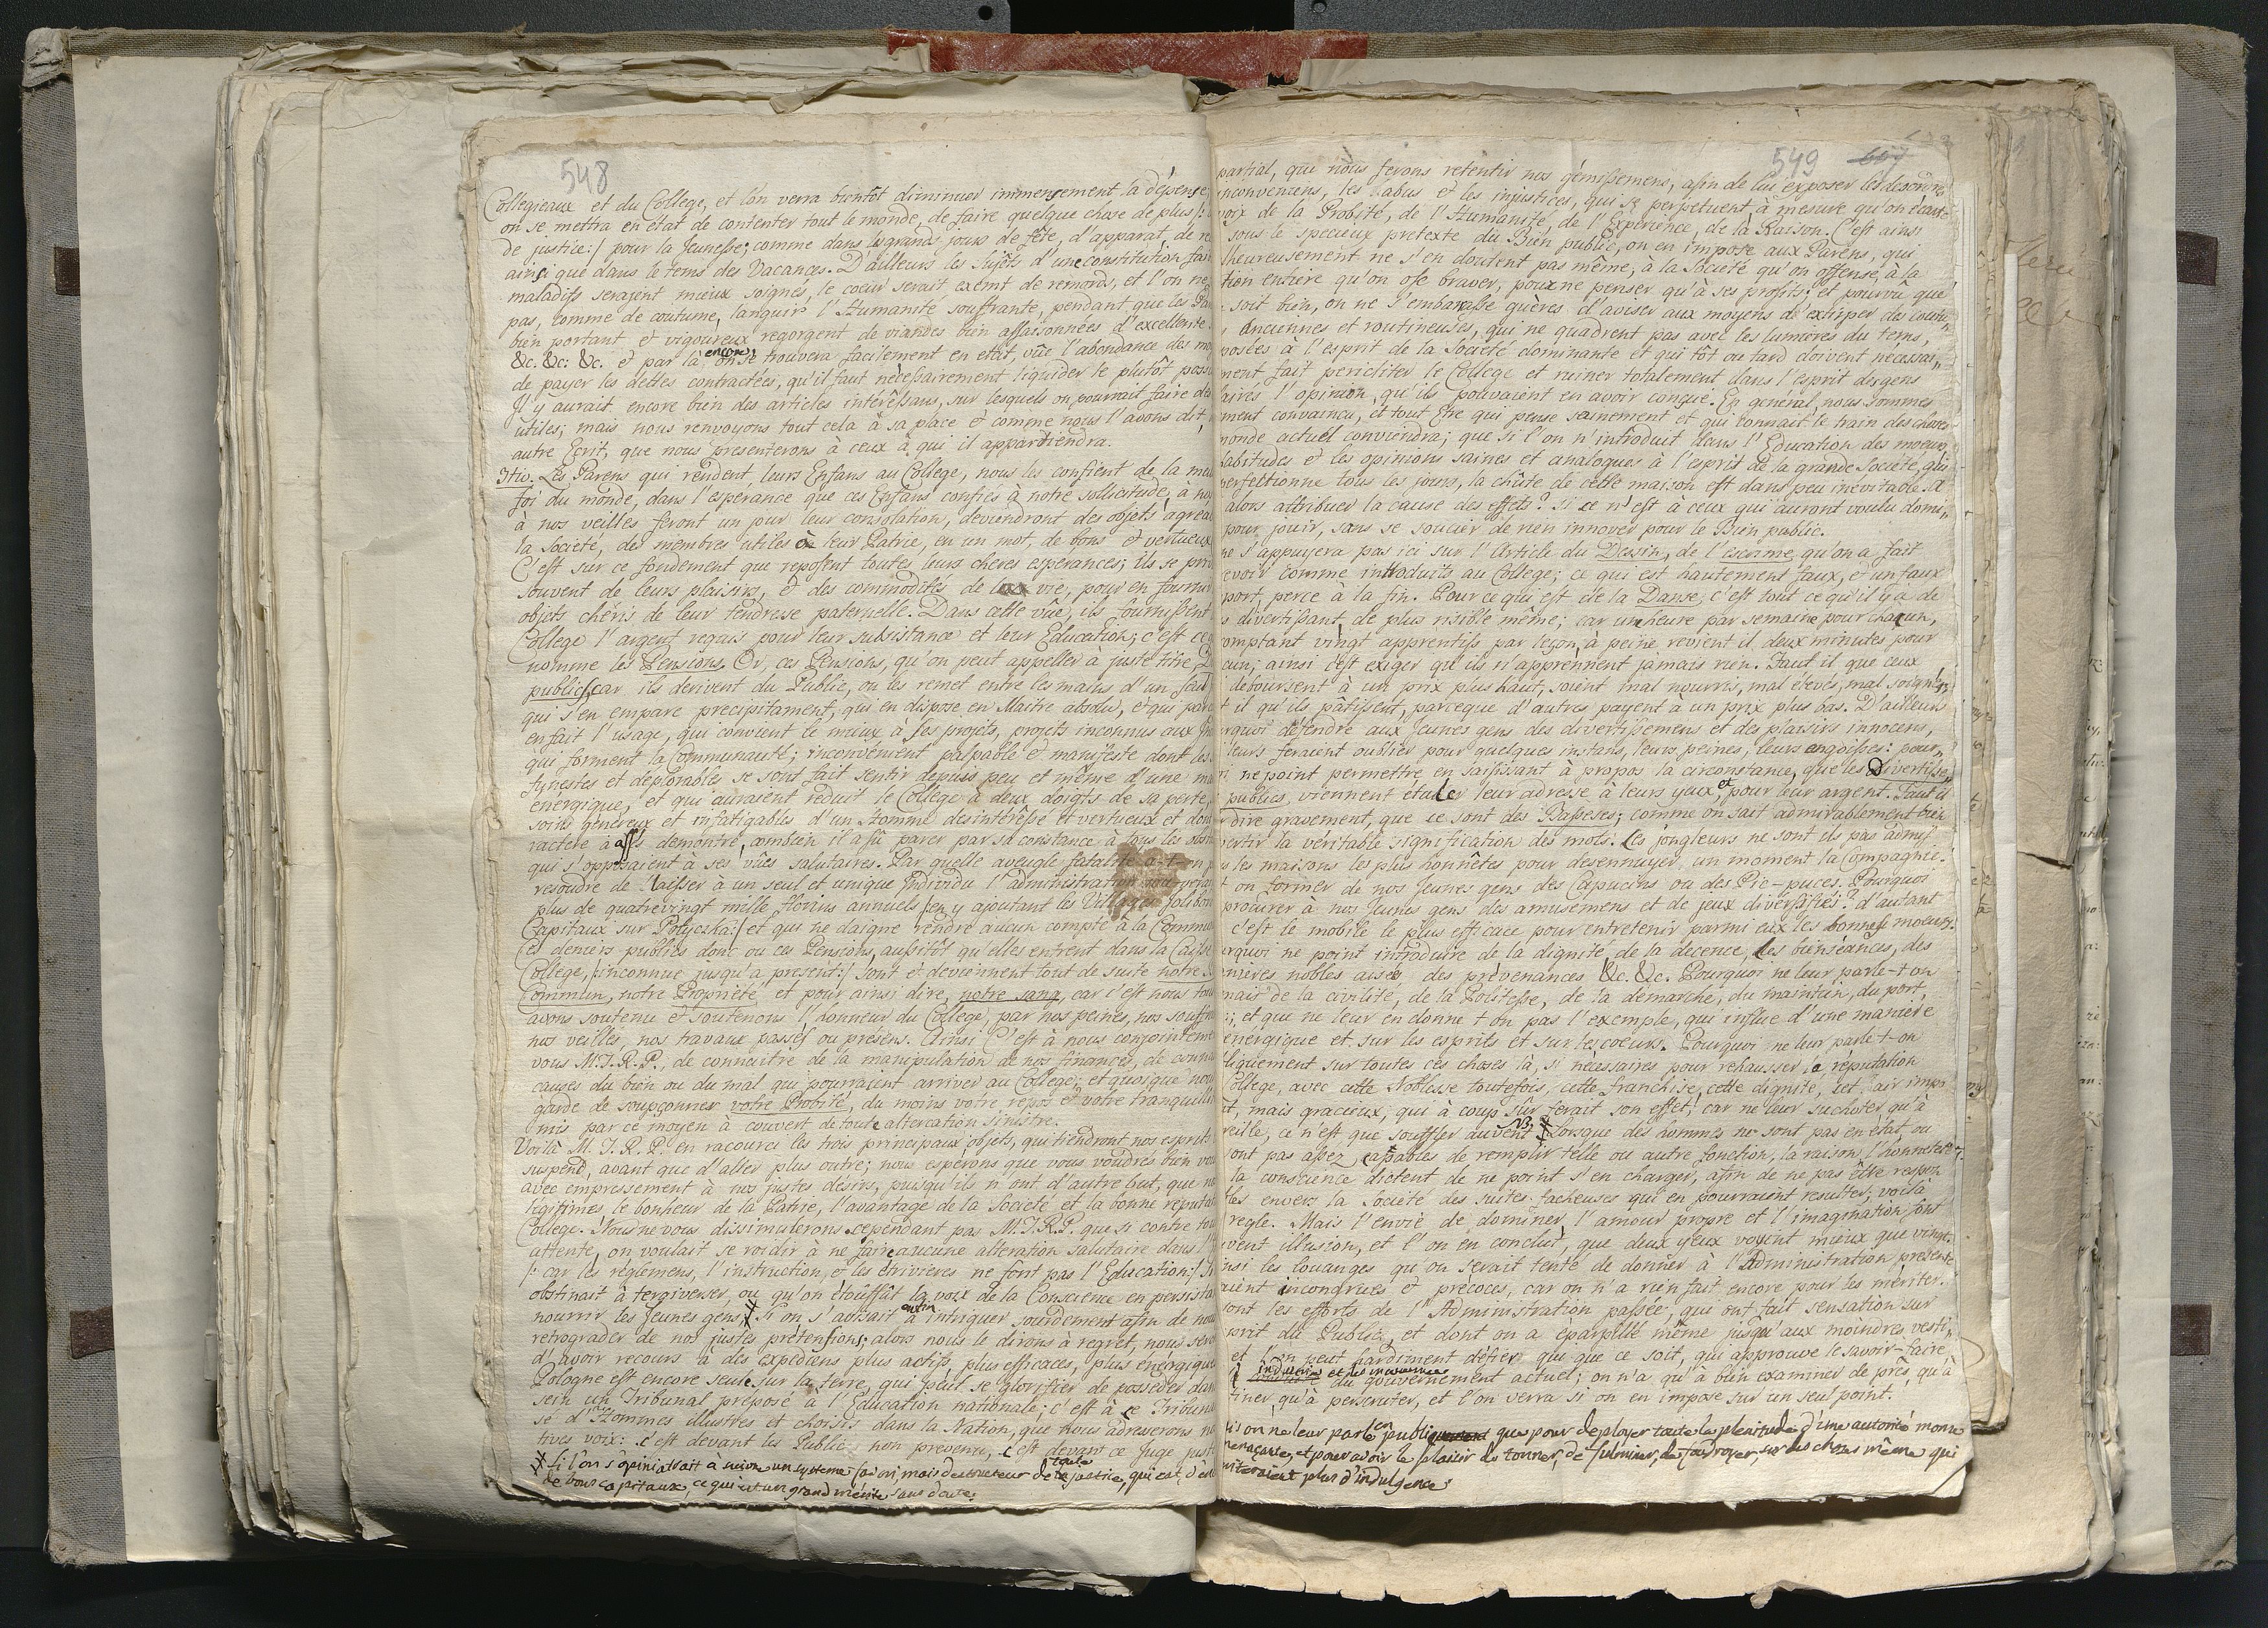 548
Collegieaux et du College, et l'on verra bientôt diminuer immensement la dépense,
on se mettra en état de contenter tout le monde, de faire quelque chose de plus /:
de justice:/ pour la Jeunesse; comme dans les grands jours de fête, d'apparat, de re
ainsi que dans le tems des Vacances. D'ailleurs les Sujêts d'une constitution fai
maladifs seraient mieux soignés, le coeur serait exemt de remords, et l'on ne
pas, comme de coutume, languir l'Humanité souffrante, pendant que les
bien portant et vigoureux regorgent de viandes bien assaisonnées d'excellente
&c. &c: &c. et par là on se encore trouvera facilement en etat, vûe l'abondance des mo
de payer les dettes contractées, qu'il faut nécessairement liquider le plutôt poss
Il y aurait encore bien des articles intérêssans, sur lesquels on pourrait faire des
utiles; mais nous renvoyons tout cela à sa place et comme nous l'avons dit,
autre Ecrit, que nous presenterons à ceux à qui il appartiendra.
3tio. Les Parens qui rendent leurs Enfans au College, nous les confient de la mei
foi du monde, dans l'esperance que ces Enfans confiés à notre sollicitude, à no
à nos veilles feront un jour leur consolation, deviendront des objets agréa
la Societé, des membres utiles à leur Patrie, en un mot, de bons et vertueux
C'est sur ce fondement que reposent toutes leurs cheres esperances; ils se pri
souvent de leurs plaisirs, et des commodités de la vie, pour en fournir
objets chéris de leur tendresse paternelle. Dans cette vûe, ils fournissent
College l'argent requis pour leur subsistance et leur Education; c'est ce
nomme les Pensions. Or, ces Pensions, qu'on peut appeller à juste titre D
publics, car ils derivent du Public, on les remet entre les mains d'un seul
qui s'en empare precipitament, qui en dispose en Maitre absolu, et qui par
en fait l'usage, qui convient le mieux à ses projets, projets inconnus aux In
qui forment la Communauté; inconvenient palpable et manifeste dont les
funestes et deplorables se sont fait sentir depuis peu et même d'une ma
énérgique, et qui auraient réduit le College à deux doigts de sa perte,
soins généreux et infatigables d'un Homme desintéressé et vertueux et don
ractere a assés demontré, combien il a sû parer par sa constance à tous les obst
qui s'opposaient à ses vûes salutaires. Par quelle aveugle fatalité a-t-on p
resoudre de laisser à un seul et unique Individu l'administration souvera
plus de quatrevingt mille florins annuels /:en y ajoutant les Villages Jolibor
Capitaux sur Potyczka:/ et qui ne daigne rendre aucun compte à la Commu
Ces deniers publics donc ou ces Pensions, aussitôt qu'elles entrent dans la Caisse
College, /:inconnue jusqu'a present:/ sont et deviennent tout de suite notre
Commun, notre Propriété et pour ainsi dire, notre sang, car c'est nous tou
avons soutenu et soutenons l'honneur du College, par nos peines, nos souffr
nos veilles, nos travaux passés ou présens. Ainsi C'est à nous conjointement
vous M.T.R.P., de connaitre de la manipulation de nos finances, de conna
causes du bien ou du mal qui pourraient arriver au College; et quoique nou
garde de soupçonner votre Probité, du moins votre repos et votre tranquilli
mis par ce moyen à couvert de toute altercation sinistre.
Voilà M.T.R.P. en racourci les trois principaux objets, qui tiendront nos esprits
suspend, avant que d'aller plus outre; nous espérons que vous voudrés bien vou
avec empressement à nos justes désirs, puisqu'ils n'ont d'autre but, que no
légitimes, le bonheur de la Patrie, l'avantage de la Societé et la bonne réputa
College. Nous ne vous dissimulerons cependant pas M.T.R.P. que si contre to
attente, on voulait se roidir à ne faire aucune alteration salutaire dans l'
/: car les réglemens, l'instruction, et les étrivieres ne font pas l'Education:/ Si
obstinait à tergiverser, ou qu'on étouffât la voix de la Conscience en persista
nourrir les Jeunes gens, # Si on s'avisait enfin à intriguer sourdement afin de nou
retrograder de nos justes prétensions; alors nous le dirons à regret, nous ser
d'avoir recours à des expédiens plus actifs, plus efficaces, plus énérgique
Pologne est encore seule sur la terre, qui peut se glorifier de posséder dan
sein un Tribunal préposé à l'Education nationale; c'est à ce Tribuna
sé d'Hommes illustres et choisis dans la Nation, que nous adresserons n
tives voix: c'est devant les Public non prevenu, c'est devant ce Juge just
# si l'on s'opiniatrait à suivre un systeme favori, mais destructeur de toute justice, qui est d'en
de bons capitaux ce qui est un grand mérite sans doute.
549 667
partial, que nous ferons retentir nos gémissemens, afin de lui exposer les desordres
inconveniens, les abus et les injustices, qui se perpetuent à mesure qu'on écart
voix de la Probité, de l'Humanité, de l'Expérience, de la Raison. C'est ainsi
sous le specieux pretexte du Bien public, on en impose aux Parens, qui
lheureusement ne s'en doutent pas même, à la Societé qu'on offense, à la
tion entiere qu'on ose braver, pour ne penser qu'à ses profits; et pourvû que
soit bien, on ne s'embarasse guères d'aviser aux moyens d'extirper des coutu"
anciennes et routineuses, qui ne quadrent pas avec les lumieres du tems,
posées à l'esprit de la Societé dominante et qui tôt ou tard doivent necessai"
ment fait péricliter le College et ruiner totalement dans l'esprit des gens
lairés l'opinion, qu'ils pouvaient en avoir conçue. En général nous sommes
ment convaincu, et tout Etre qui pense sainement et qui connait le train des choses
monde actuel conviendra; que si l'on n'introduit dans l'Education des moeurs,
habitudes et les opinions saines et analogues à l'esprit de la grande Societé, qui
perfectionne tous les jours, la chûte de cette maison est dans peu inévitable. A
alors attribuer la cause des effets? Si ce n'est à ceux qui auront voulu domi"
pour jouir, sans se soucier de rien innover pour le Bien public.
ne s'appuyera pas ici sur l'Article du Dessin, de l'escrime, qu'on a fait
evoir comme introduits au College; ce qui est hautement faux, et un faux
port, perce à la fin. Pour ce qui est de la Danse, c'est tout ce qu'il y a de
s divertissant, de plus risible même; car un heure par semaine pour chacun,
omptant vingt apprentifs par leçon, à peine revient il deux minutes pour
cun; ainsi c'est exiger qu'ils n'apprennent jamais rien. Faut il que ceux
deboursent à un prix plus haut, soient mal nourris, mal élevés, mal soignés;
t il qu'ils pâtissent, parceque d'autres payent à un prix plus bas. D'ailleurs
urquoi défendre aux Jeunes gens des divertissemens et des plaisirs innocens,
leurs feraient oublier pour quelques instans, leurs peines, leurs angoisses: pour"
i ne point permettre en saisissant à propos la circonstance, que les Divertisse"
publics, viennent étaler leur adresse à leurs yeux, et pour leur argent. Faut il
dire gravement, que ce sont des Bassesses; comme on sait admirablement bien
vertir la véritable signification des mots. Ces jongleurs ne sont ils pas admis
s les maisons les plus honnêtes pour désennuyer un moment la Compagnie.
t on former de nos Jeunes gens des Capucins ou des Pic-puces. Pourquoi
procurer à nos Jeunes gens des amusemens et de jeux diversifiés? d'autant
c'est le mobile le plus efficace pour entretenir parmi eux les bonnes moeurs.
urquoi ne point introduire de la dignité, de la décence, des bienséances, des
nieres nobles aisées, des prévenances &c. &c. Pourquoi ne leur parle-t on
mais de la civilité, de la Politesse, de la démarche, du maintien, du port,
:; et que ne leur en donne t on pas l'exemple, qui influe d'une maniere
énérgique et sur les esprits et sur les coeurs. Pourquoi ne leur parle t-on
liquement sur toutes ces choses là, si nécessaires pour rehausser la réputation
College, avec cette Noblesse toutefois, cette franchise, cette dignité, cet air impo
nt, mais gracieux, qui à coup sûr ferait son effet; car ne leur suchoter qu'à
reille, ce n'est que souffler au vent. NB. # Lorsque des hommes ne sont pas en état, ou
sont pas assez capables de remplir telle ou autre fonction, la raison, l'honnêteté
la conscience dictent de ne point s'en charger, afin de ne pas être respon
les envers la Societé des suites facheuses qui en pourraient resulter; voilà
regle. Mais l'envie de dominer, l'amour propre et l'imagination font
vent illusion, et l'on en conclut, que deux yeux voyent mieux que vingt.
nsi les louanges qu'on serait tenté de donner à l'Administration présente
aient incongrues et précoces, car on n'a rien fait encore pour les mériter.
sont les efforts de l'Administration passée, qui ont fait sensation sur
sprit du Public, et dont on a éparpillé même jusqu'aux moindres vesti"
et l'on peut hardiment défier qui que ce soit, qui approuve le savoir-faire
du gouvernement actuel; on n'a qu'à bien examiner de près, qu'à
tiner, qu'à perscruter, et l'on verra si on en impose sur un seul point.
si on ne leur parle en public que pour deployer toute la plenitude d'une autorité
menaçante, et pour avoir le plaisir de tonner, de fulminer, de foudroyer, sur des choses même qui
riteraient plus d'indulgence.